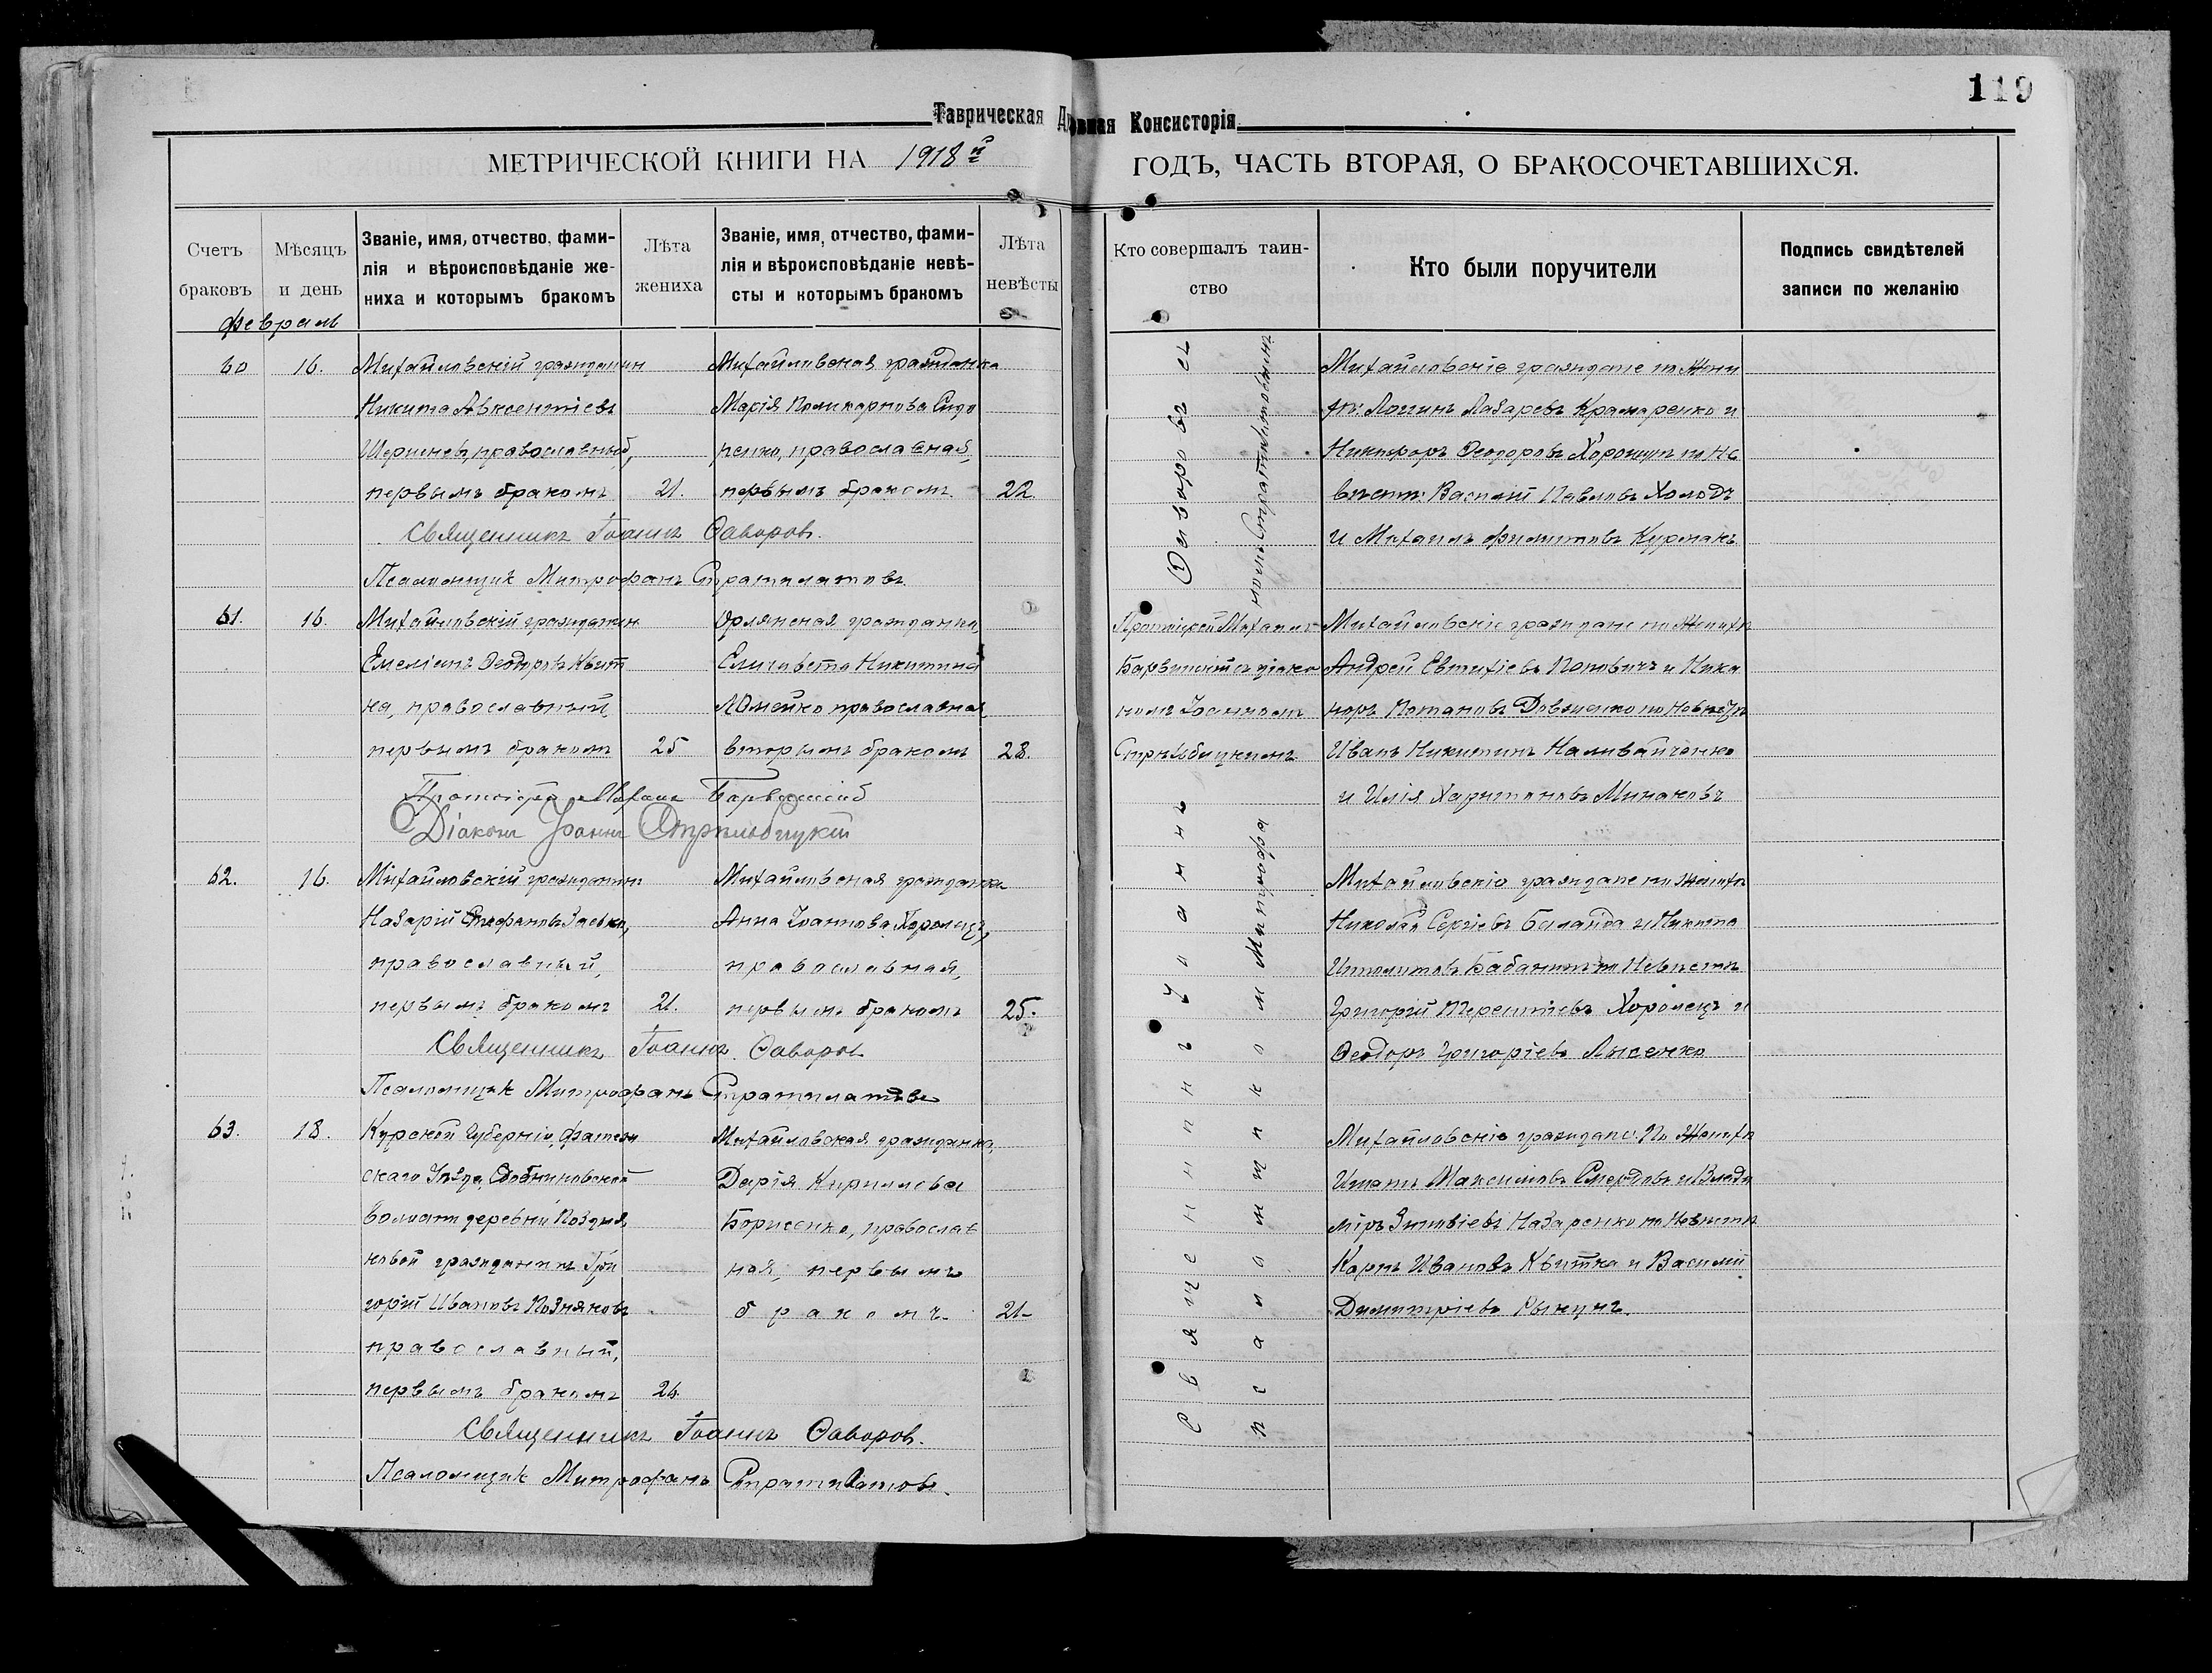 119
Таврическая Духовная Консисторія
МЕТРИЧЕСКОЙ КНИГИ НА 1918й ГОДЪ, ЧАСТЬ ВТОРАЯ, О БРАКОСОЧЕТАВШИХСЯ.
Счетъ браковъ
Мѣсяцъ и день
Званіе, имя, отчество, фами-
лія и вѣроисповѣданіе же-
ниха и которымъ бракомъ
Лѣта жениха
Званіе, имя, отчество, фами-
лія и вѣроисповѣданіе невѣ-
сты и которымъ бракомъ
Лѣта невѣсты
Кто совершалъ таин-
ство
Кто были поручители
Подпись свидѣтелей
записи по желанію
февраль
60 16.
Михайловскій гражданин
Никита Авксентіевъ
православный,
первымъ бракомъ 21.
Михайловская гражданка
Марія Поликарпова Сидо
ренко, православная,
первымъ бракомъ 22.
Михайловскіе граждане по Жени
хѣ: Логинъ Лазаревъ Крамаренко и
Никифоръ Феодоровъ по Не
вѣстѣ: Василій Павловъ Холодъ
и Михаилъ Филиповъ Курманъ
Священникъ Іоаннъ Ѳаворовъ.
Псаломщикъ Митрофанъ Стратилатовъ
61. 16.
Михайловскій гражданин
Емеліанъ Феодоровъ Квит
ка, православный,
первымъ бракомъ 25
Орлянская гражданка,
Елисавета Никитина
православная,
вторымъ бракомъ 28.
Протоіерей Михаилъ
Барвинскій съ діако
номъ Іоанномъ
Стрѣльбицкимъ
Михайловскіе граждане по Женихѣ
Андрей Евтихіевъ Поповичъ и Ника
норъ Потаповъ Довженко по Невѣстѣ
Иванъ Никитинъ Наливайченко
и Илія Харитоновъ Минаковъ
Протоіерей Михаилъ Барвинскій
Діаконъ Іоаннъ Стрѣльбицкій
62. 16.
Михайловскій гражданинъ
Назарій Стефановъ Заевко,
православный,
первымъ бракомъ 21.
Михайловская гражданка
Анна Іоаннова Хоролецъ,
православная,
первымъ бракомъ 25.
Михайловскіе граждане по Женихѣ
Николай Сергіевъ Балайда и Никита
Ипполитовъ по Невѣстѣ
Григорій Терентіевъ Хоролецъ и
Феодоръ Григоріевъ Лысенко
Священникъ Іоаннъ Ѳаворовъ
Псаломщикъ Митрофанъ Стратилатовъ
63. 18.
Курской Губерніи, Фатеж
скаго Уѣзда,
волости деревни Поздня
ковой гражданинъ Гри
горій Ивановъ Позняковъ
православный,
первымъ бракомъ 26
Михайловская гражданка,
Дарія Кириллова
Борисенко, православ
ная, первымъ
бракомъ 21
Михайловскіе граждане: По Женихѣ
Игнатъ Максимовъ Смердовъ и Влади
міръ Зиновіевъ Назаренко по Невѣстѣ
Карпъ Ивановъ Квитка и Василій
Димитріевъ
Священникъ Іоаннъ Ѳаворовъ.
Псаломщикъ Митрофанъ Стратилатовъ.
Священникъ Іоаннъ Ѳаворовъ съ
псаломщикомъ Митрофаномъ Стратилатовымъ